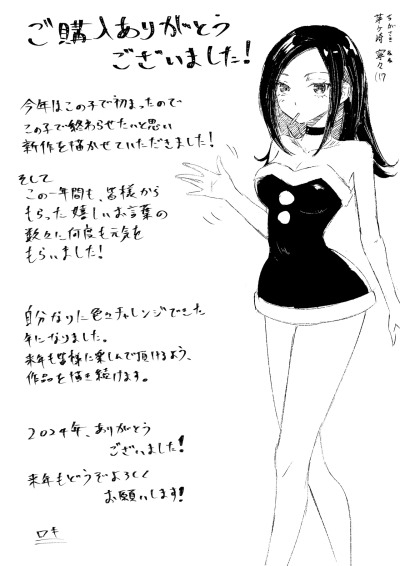 ご購入ありがとう
ございました!
今年はこの子で初まったので
この子で終わらせたいと思い
新作を描かせていただきました!
そして
この一年間も、皆様から
もらった嬉しいお言葉の
数々に何度も元気を
もらいました!
自分なりに色々チャレンジできた
年になりました。
来年も皆様に楽しんで頂けるよう、
作品を描き続けます。
2024年、ありがとう
ございました!
来年もどうぞよろしく
お願いします!
ロキ
ちがさき ねね
茅ヶ崎 寧々(17